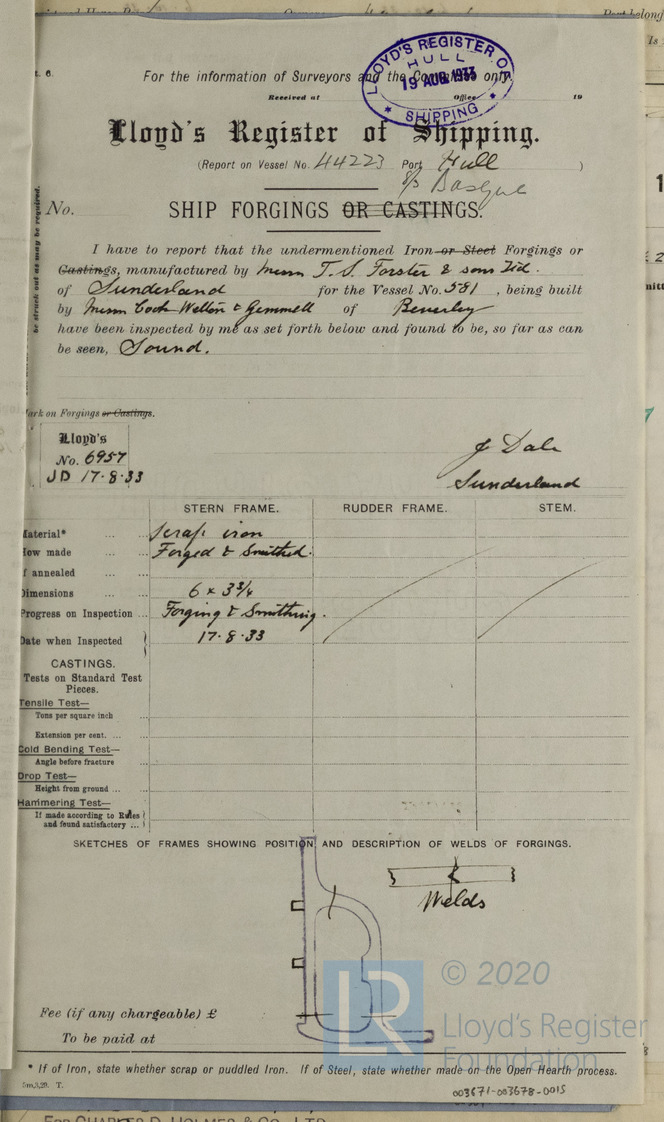 For the information of Surveyors and the Committee only.
LLOYD'S REGISTER OF SHIPPING
HULL
19 AUG 1933
Received at Office 19
Lloyd's Register of Shipping.
(Report on Vessel No. 44223 Port Hull )
S/S Basque
No. SHIP FORGINGS OR CASTINGS.
I have to report that the undermentioned Iron or Steel Forgings or
Castings, manufactured by Messrs T. S. Forster & sons Ltd.
of Sunderland for the Vessel No. 581, being built
by Messrs Cook Welton & Gemmell of Beverley
have been inspected by me as set forth below and found to be, so far as can
be seen, Sound.
be struck out as may be required.
Mark on Forgings or Castings.
Lloyd's
No. 6957
JD 17.8.33
J Dale
Sunderland
STERN FRAME. RUDDER FRAME. STEM.
Material* ... ... Scrap iron
How made ... ... Forged & Smithed.
If annealed ... ...
Dimensions ... ... 6 x 3 3/4
Progress on Inspection ... Forging & Smithing.
Date when Inspected 17.8.33
CASTINGS.
Tests on Standard Test
Pieces.
Tensile Test—
Tons per square inch ...
Extension per cent. ... ...
Cold Bending Test—
Angle before fracture ...
Drop Test—
Height from ground ... ...
Hammering Test—
If made according to Rules
and found satisfactory ...
SKETCHES OF FRAMES SHOWING POSITION AND DESCRIPTION OF WELDS OF FORGINGS.
Welds
Fee (if any chargeable) £
To be paid at
LR
© 2020
Lloyd's Register
Foundation
* If of Iron, state whether scrap or puddled Iron. If of Steel, state whether made on the Open Hearth process.
5m,3,29. T.
003671-003678-0015
FOR CHARLES D. HOLMES & CO., LTD.